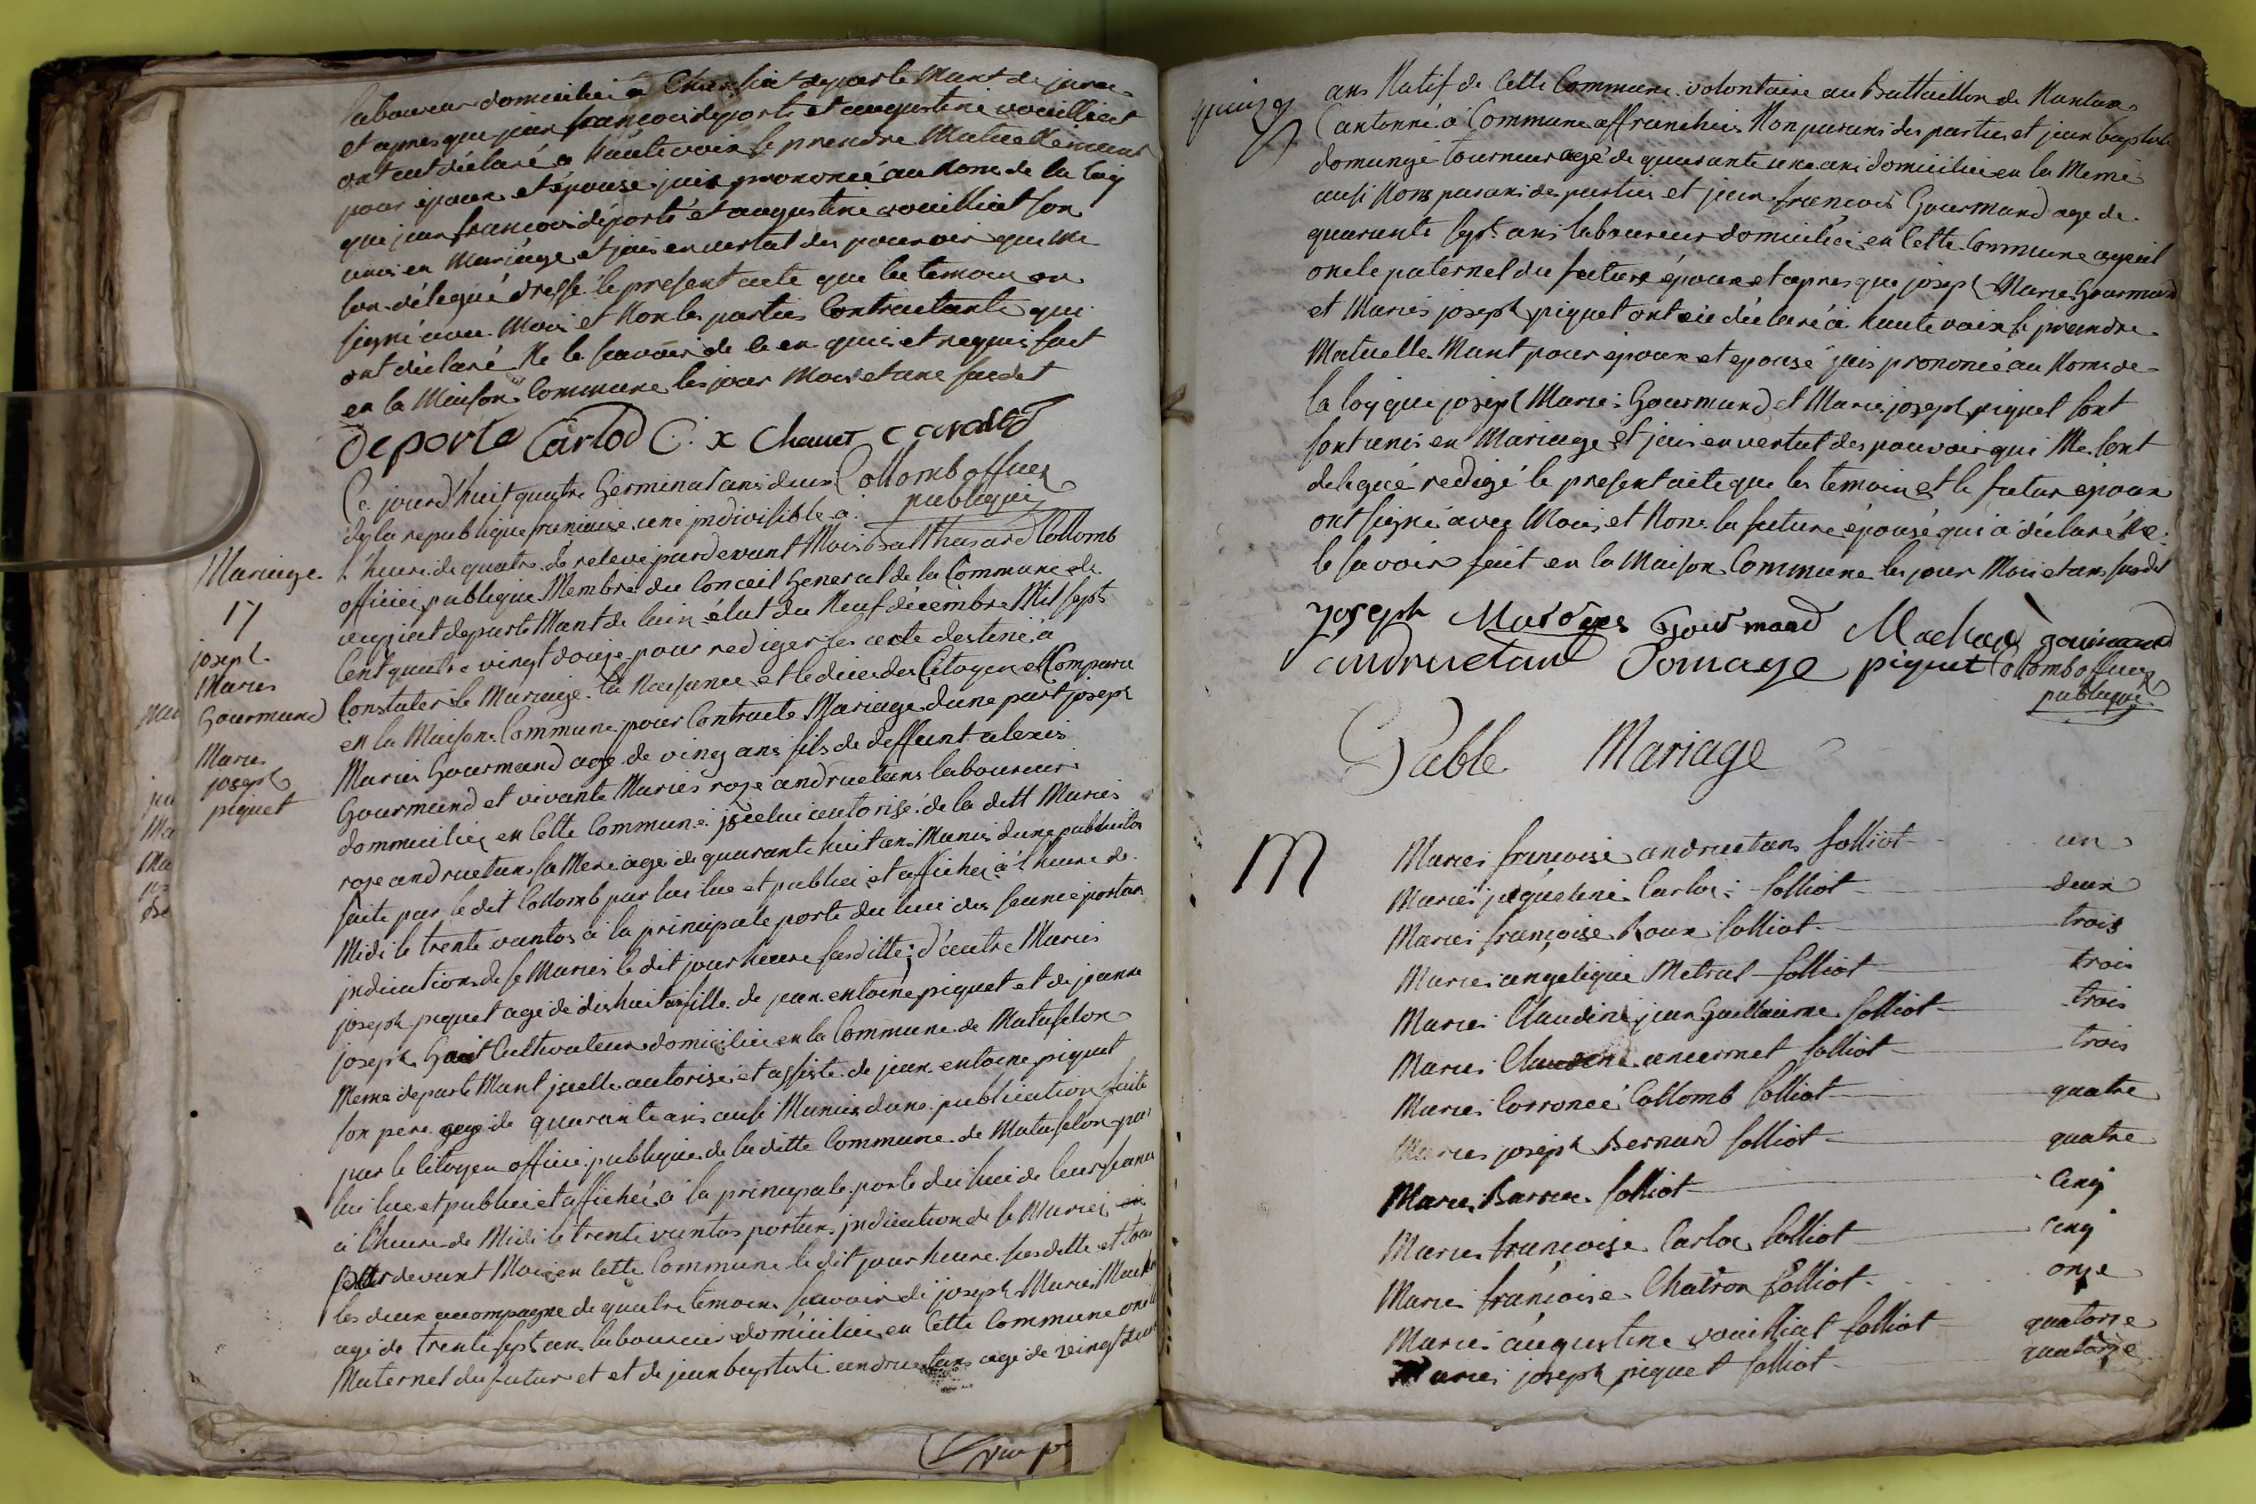 laboureur domicilié à Charchiat departe Mant de jura
et apres que jean francois deporte et augustine vouilliat
ont eut déclaré a hautevoix se prendre Mutuellemant
pour epoux et épouse jais prononcé au Nom de la loy
que jean francois déporte et augustine vouilliat son
unis en Mariage et jais en vertut des pouvoir que me
son délegué dressé le present acte que les temoin on
signé avec Moi et Non les parties Contractante qui
ont déclaré Ne le savoir de ce en quis et requis fait
en la Maison Commune les jour Mois et ans susdit
deporte Carlod C. x Chanet Collomb officier
publique
Ce jourd'huit quatre Germinal ans deux
dy la republique francaise une indivisible à
l'heure de quatre de relevé pardevant Mois Balthasard Collomb
officier publique Membre du Conceil General de la Commune de
veyziat departe Mant de lain élut du Neuf décembre Mil sept
Cent quatre vingt douze pour rediger les acte destiné à
Constater le Mariage la Naisance et le dices des Citoyen est Comparu
en la Maison Commune pour Contracte Mariage dune part joseph
Maries Gourmand age de vingt ans fils de deffunt alexis
Gourmand et vivante Maries roze andruetans laboureur
dommicilies en Cette Commune iscelui autorisé de la ditt Maries
roze andruetans sa Mere agé de quarante huit ans Munis dune publication
faite par le dit Collomb par lui lue et publiei et affichez à l'heure de
Midi le trente vantos à la principale porte du lieu des seance portan
indications de se Maries le dit jour heure susditte; d'autre Maries
joseph piquet agé de dishuit ans fille de jean entoine piquet et de jeanne
joseph Gaut Cultivateur domicilié en la Commune de Matafelon
Meme departe Mant jscelle autorise et assisté de jean entoine piquet
son pere age de quarante ans ausi Munis dune publication faite
par le Citoyen officié publique de la ditte Commune de Matafelon par
lui lue et publiei et affichéi à la principale porte du lieu de leur seance
à l'heure de Midi le trente vantos portans indication de se Mariés
pardevant Mois en Cette Commune le dit jour heure susditte et tous
les deux accompagne de quatre temoins savoir de joseph Maries
agé de trente sept ans laboureur domicilié en Cette Commune oncle
Maternel du futur et et de jean baptiste andruetans agé de vingt deux
Mariage
17
joseph
Maries
Gourmand
Maries
joseph
piquet
vu p
quinze
ans Natif de Cette Commune volontaire au Battaillon de Nantua
Cantonné à Commune affranchies Non parans des parties et jean baptiste
domange tourneur agé de quarante une ans domicilié en la Meme
ausi Nom parans des parties et jean francois Gourmand age de
quarante sept ans laboureur domicilié en Cette Commune
oncle paternel du future époux et apres que joseph Maries Gourmand
et Maries joseph piquet ont eu déclaré à haute voix se prandre
Mutuelle Mant pour époux et epouse jais prononcé au Nom de
la loy que joseph Maries Gourmand et Maries joseph piquet sont
sont unis en Mariage et jais en vertut des pouvoir qui Me sont
delegué redigé le present acte que les temoin et le futur epoux
ont signé avec Mois et Non la future épouse qui a déclaré Ne
le savoir fait en la Maison Commune les jour Mois et ans susdit
joseph Maries Gourmand Gourmand
andruetan Domage piquet Collomb officier
publique
Table Mariage
M
Maries francoise andruetans folliot un
Maries jaqueline Carlod folliot deux
Maries françoise Roux folliot trois
Maries angelique Metral folliot trois
Maries Claudine jean Guillaume folliot trois
Maries Claudine ancermet folliot trois
Maries Corroneé Collomb folliot quatre
Maries joseph Bernard folliot quatre
Maries Barrue folliot Cinq
Maries françoise Carlod folliot Cinq
Maries françoise Chatron folliot onze
Maries augustine vouilliat folliot quatorze
Maries joseph piquet folliot quatorze